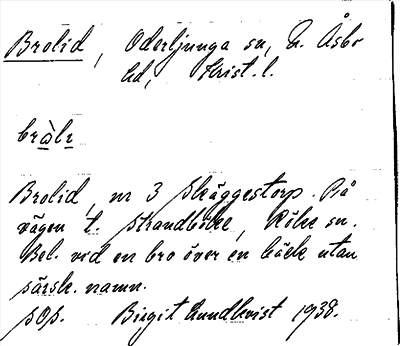 Brolid, Oderljunga sn, N. Åsbo
hd, Krist. l.
bràlı
Brolid, nr 3 Skäggestorp. På
vägen t. Strandböke, Röke sn.
Bel. vid en bro över en bäck utan
särsk. namn.
sos. Birgit Lundkvist 1938.